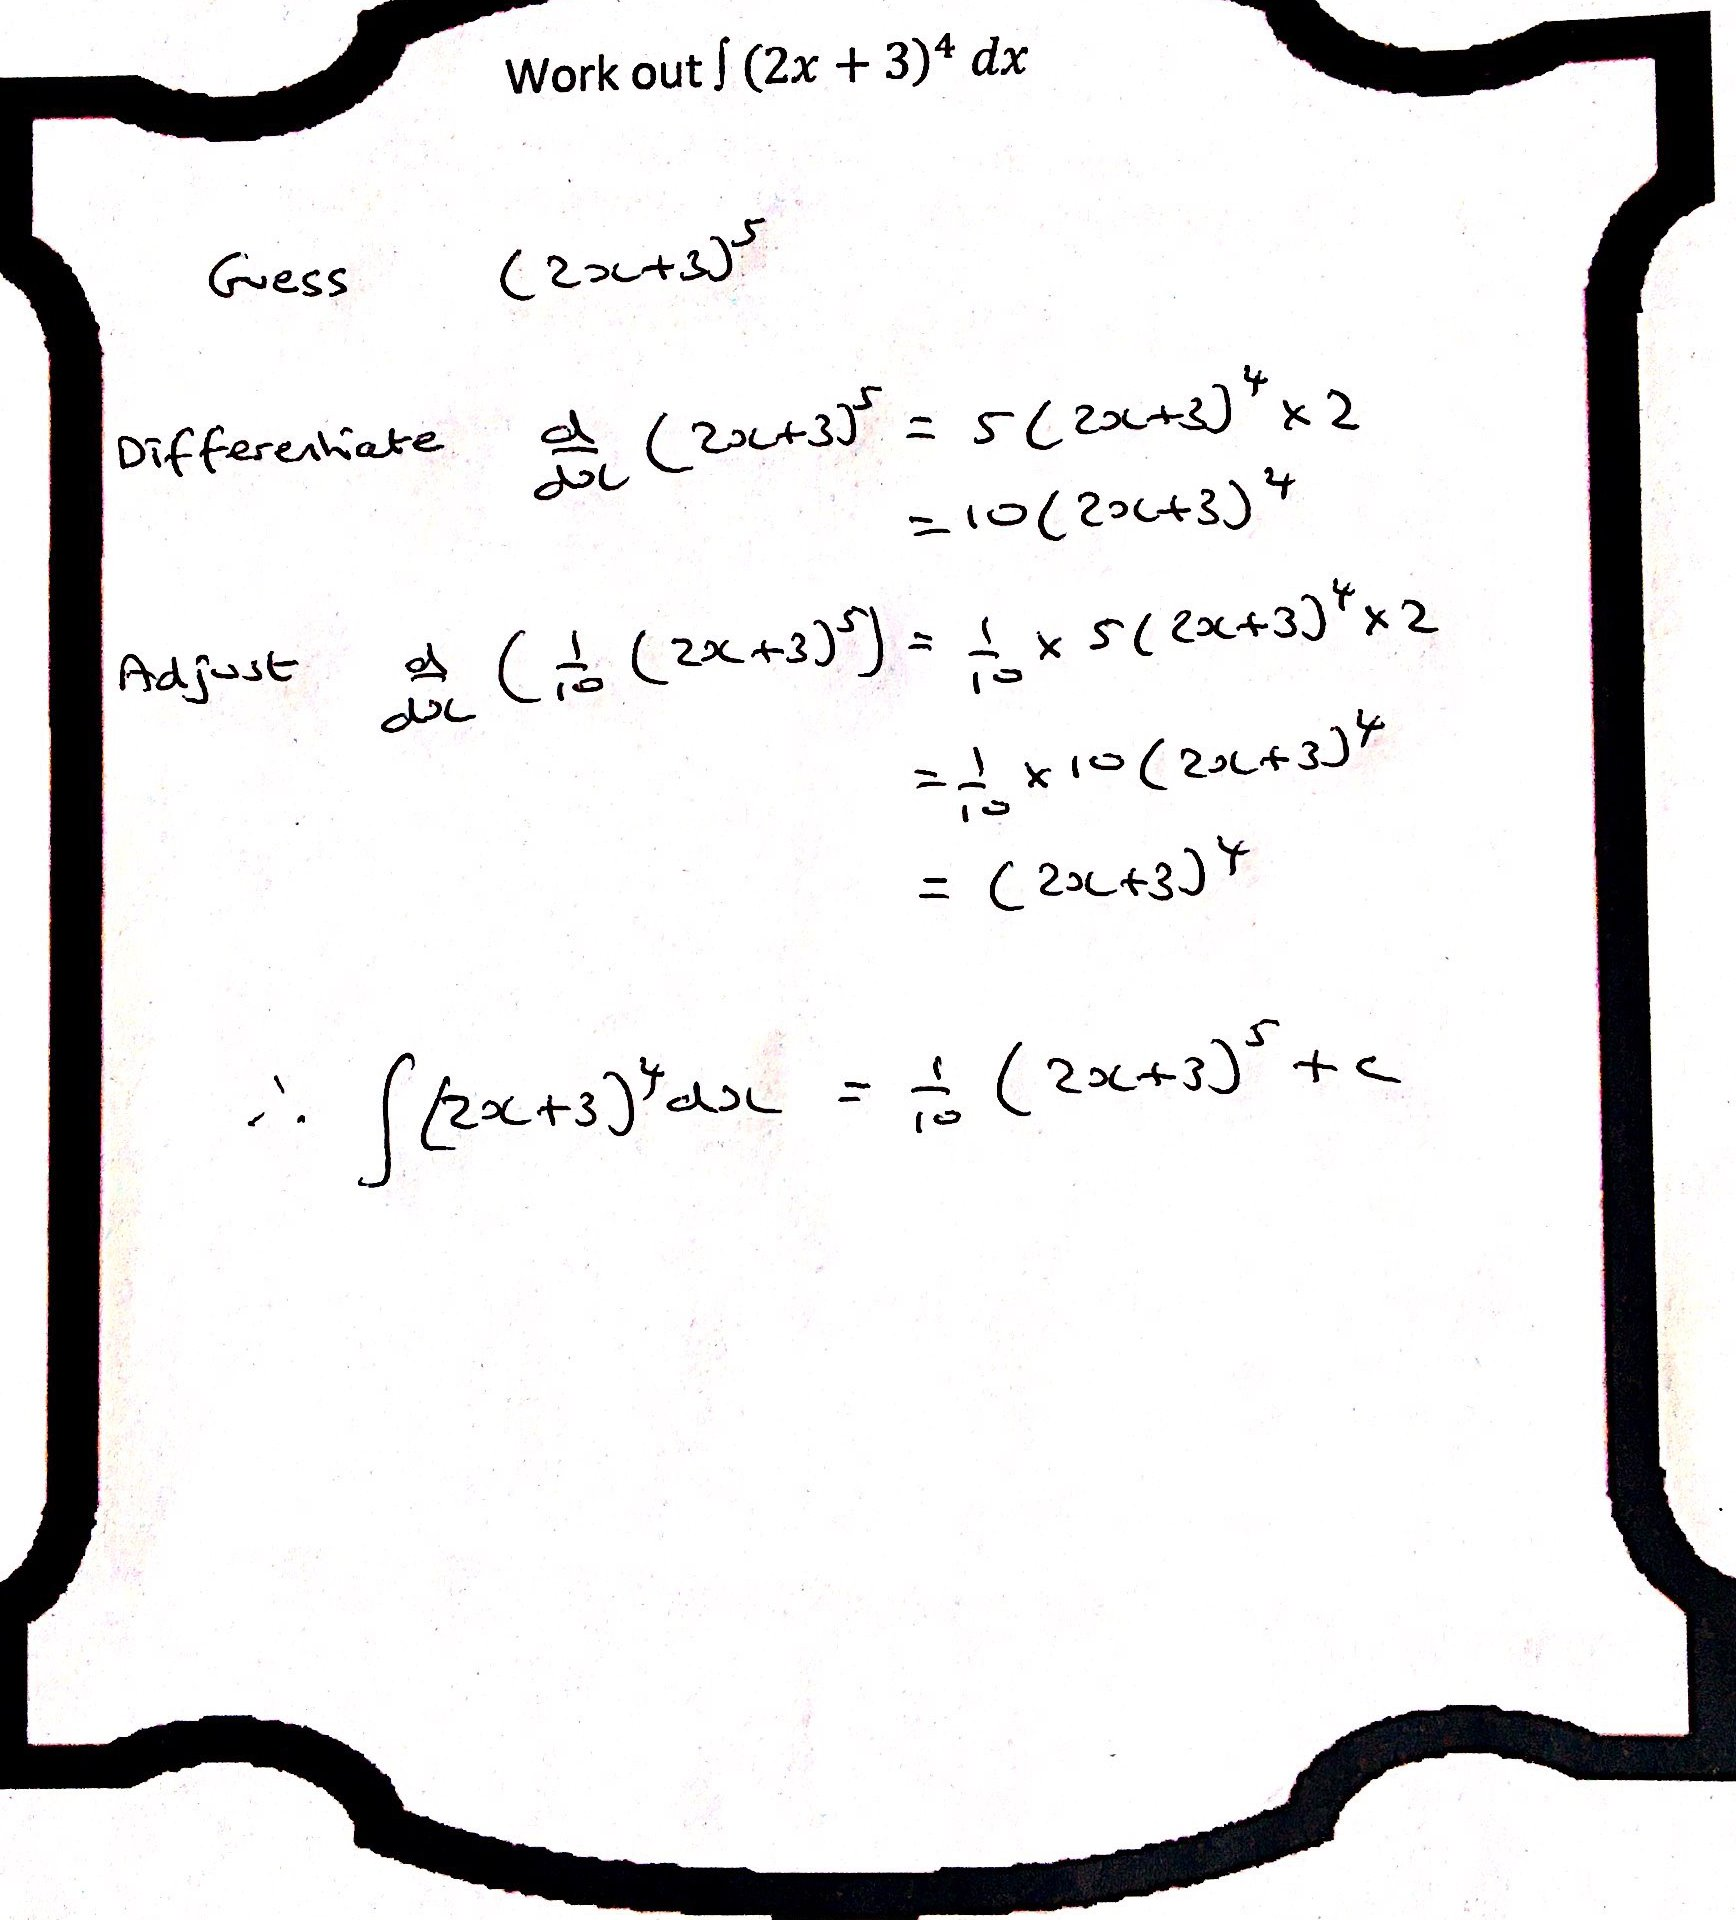 Work out ∫ (2x + 3)⁴ dx
Guess (2x+3)⁵
Differentiate d/dx (2x+3)⁵ = 5(2x+3)⁴ × 2
= 10(2x+3)⁴
Adjust d/dx (1/10 (2x+3)⁵) = 1/10 × 5(2x+3)⁴ × 2
= 1/10 × 10(2x+3)⁴
= (2x+3)⁴
∴ ∫(2x+3)⁴dx = 1/10 (2x+3)⁵ + c